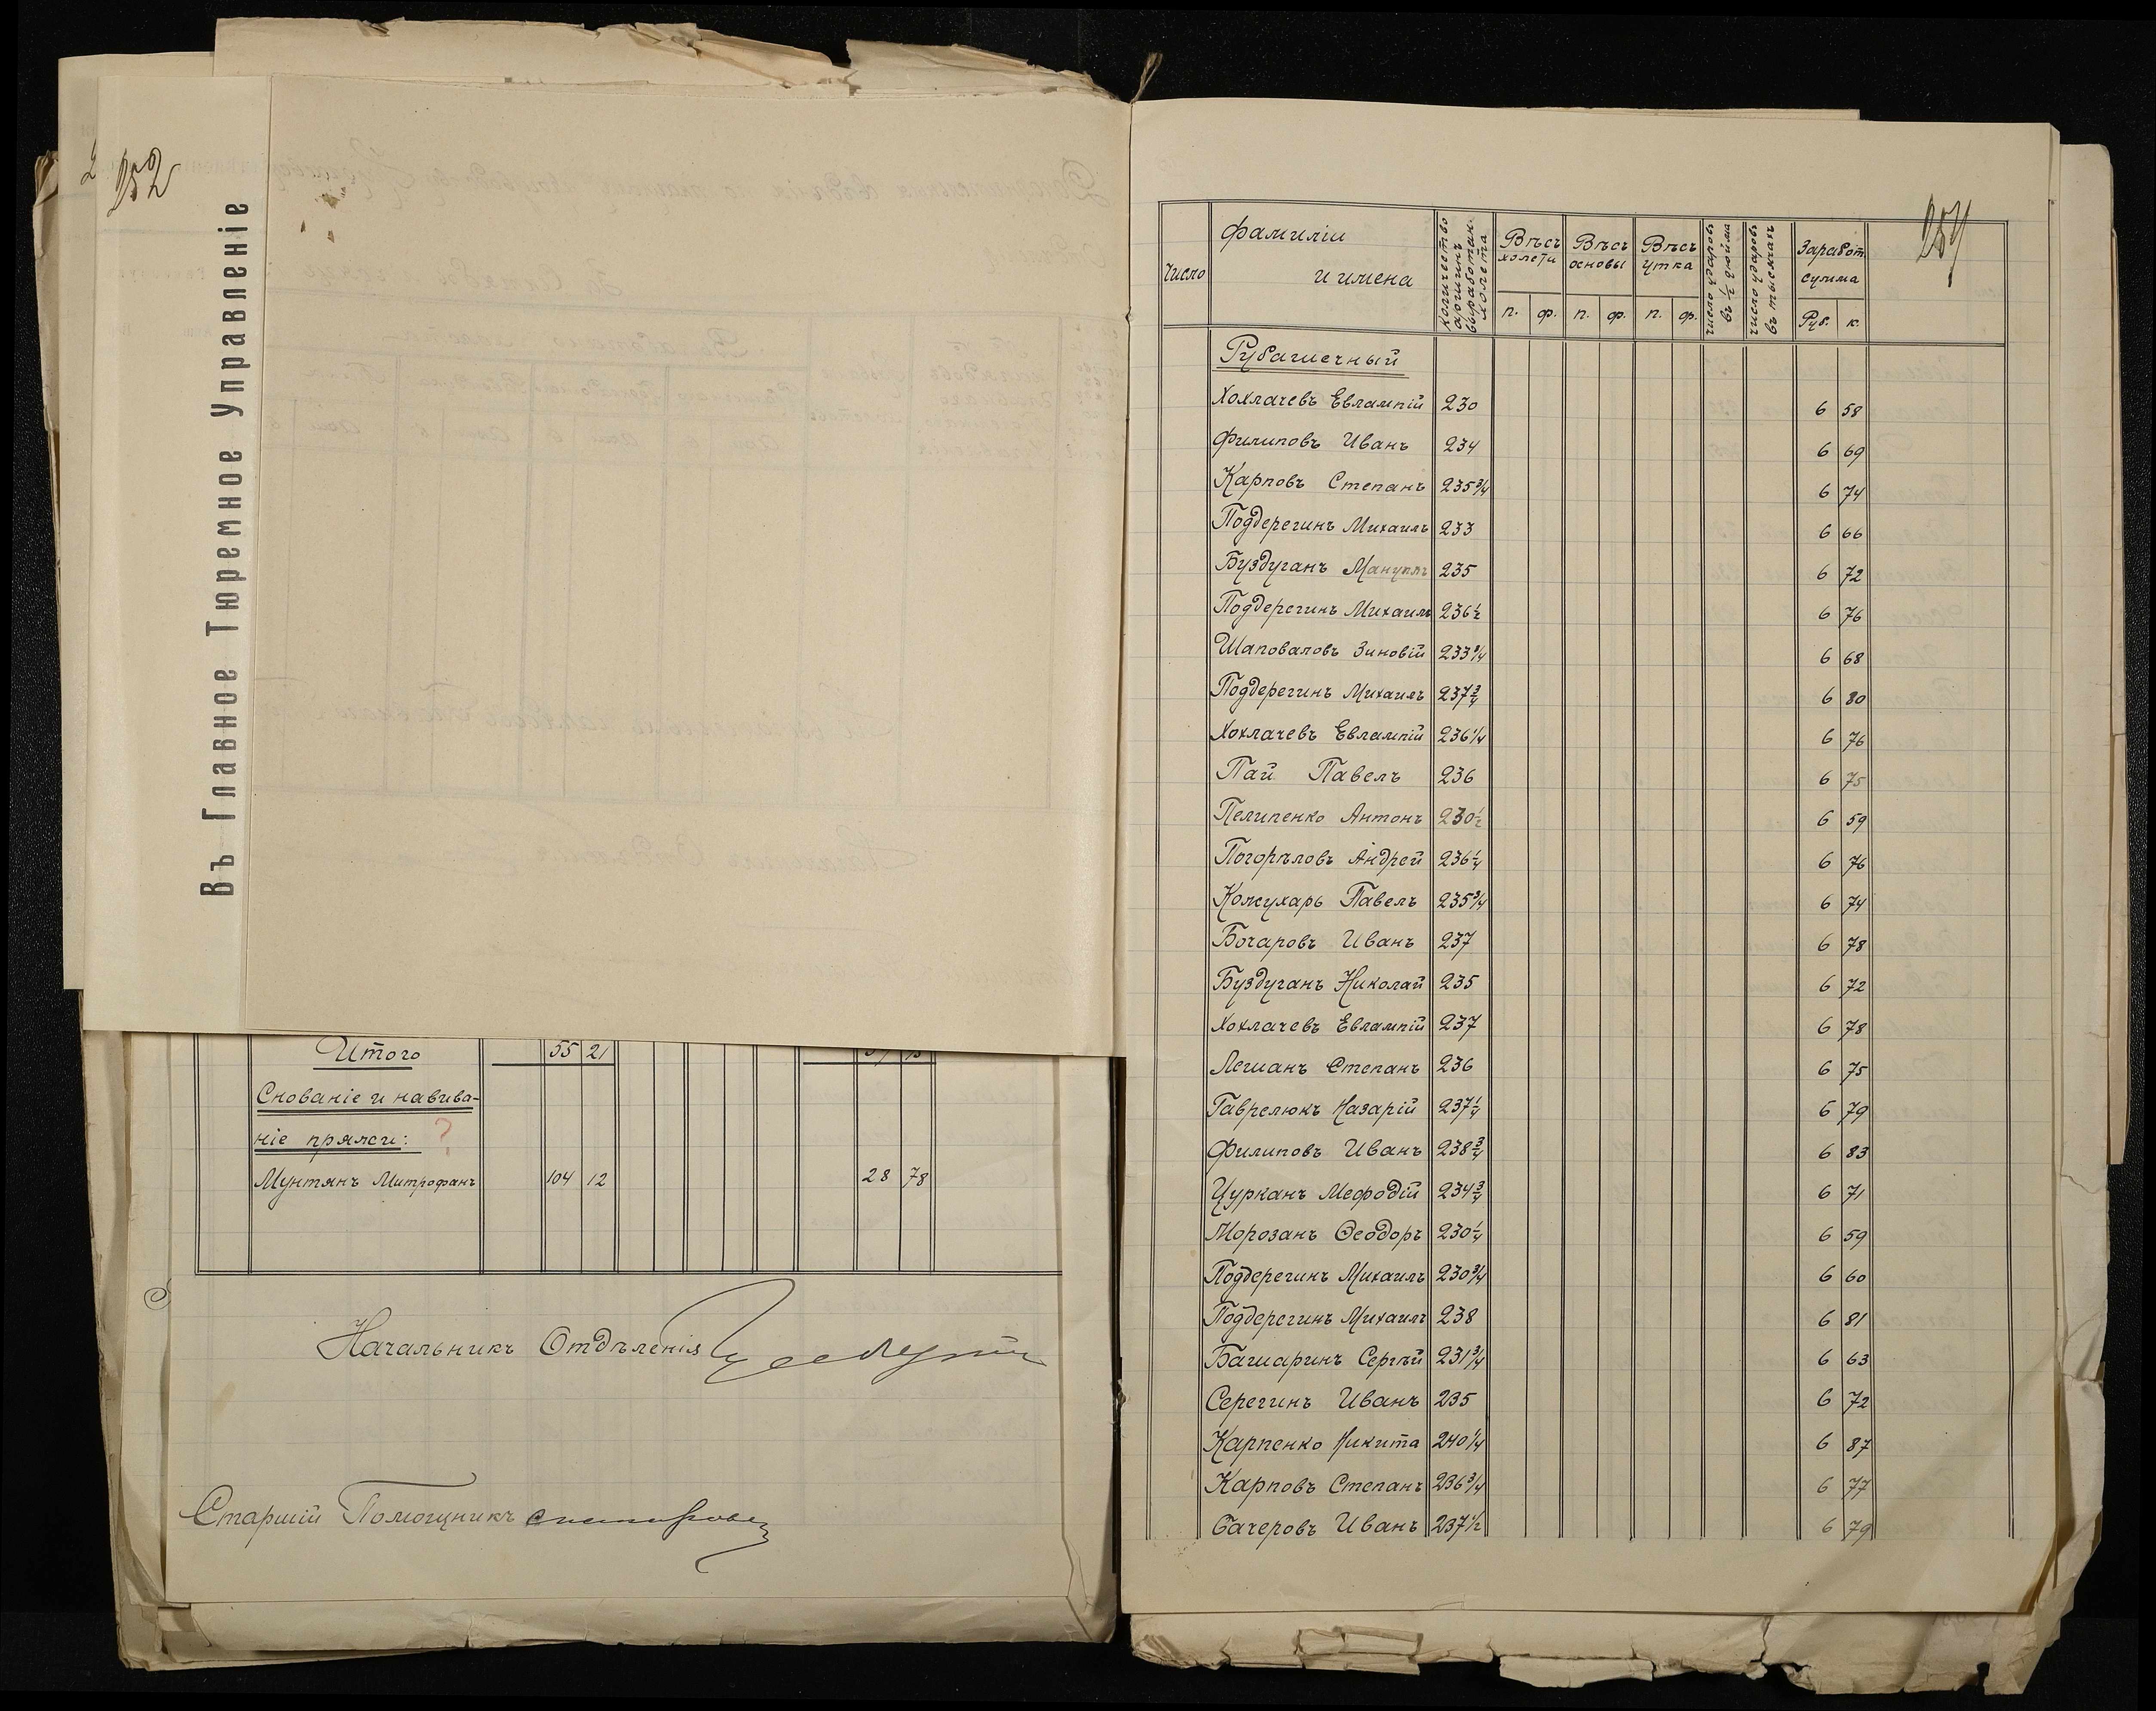 252
Въ Главное Тюремное Управленіе
Итого 55 21
Снованіе и навива-
ніе пряжи: ?
Мунтянъ Митрофанъ 104 12 28 78
Начальникъ Отдѣленія
Старшій Помощникъ
254
Число Фамиліи и имена Количество аршинъ выработан. холста Вѣсъ холста Вѣсъ основы Вѣсъ утка число ударовъ въ 1/2 дюйма число ударовъ въ тысячахъ Заработ. сумма
п. ф. п. ф. п. ф. Руб. к.
Рубашечный
Хохлачевъ Евлампій 230 6 58
Филиповъ Иванъ 234 6 69
Карповъ Степанъ 235 3/4 6 74
Поддерегинъ Михаилъ 233 6 66
Буздуганъ Мануилъ 235 6 72
Поддерегинъ Михаилъ 236 1/2 6 76
Шаповаловъ Зиновій 233 3/4 6 68
Поддерегинъ Михаилъ 237 3/4 6 80
Хохлачевъ Евлампій 236 1/4 6 76
Пай Павелъ 236 6 75
Пелипенко Антонъ 230 1/2 6 59
Погорѣловъ Андрей 236 1/4 6 76
Кожухарь Павелъ 235 3/4 6 74
Бочаровъ Иванъ 237 6 78
Буздуганъ Николай 235 6 72
Хохлачевъ Евлампій 237 6 78
Легианъ Степанъ 236 6 75
Гаврелюкъ Назарій 237 1/4 6 79
Филиповъ Иванъ 238 3/4 6 83
Цурканъ Мефодій 234 3/4 6 71
Морозанъ Ѳеодоръ 230 1/4 6 59
Поддерегинъ Михаилъ 230 3/4 6 60
Поддерегинъ Михаилъ 238 6 81
Башаринъ Сергѣй 231 3/4 6 63
Серегинъ Иванъ 235 6 72
Карпенко Никита 240 1/4 6 87
Карповъ Степанъ 236 3/4 6 77
Бачеровъ Иванъ 237 1/2 6 79